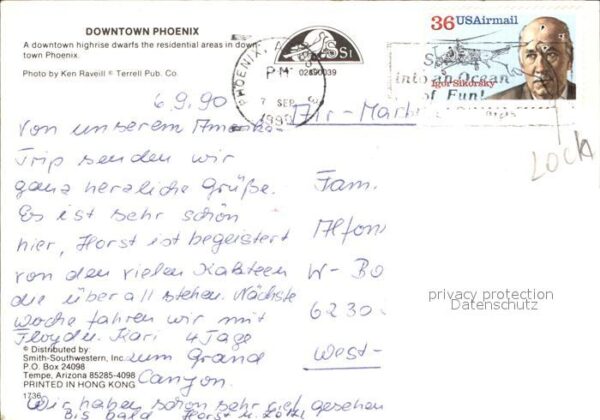 DOWNTOWN PHOENIX
A downtown highrise dwarfs the residential areas in down
town Phoenix.
Photo by Ken Raveill © Terrell Pub. Co.
SSI
02890039
PHOENIX, A
PM
7 SEP
1990
36 USAirmail
Igor Sikorsky
into an Ocean
of Fun!
LOCH
6.9.90
Von unserem Amerika-
Trip senden wir
ganz herzliche Grüße.
Es ist sehr schön
hier, Horst ist begeistert
von den vielen Kakteen
die überall stehen. Nächste
Woche fahren wir mit
Floyd u. Kari 4 Tage
zum Grand
Canyon.
Wir haben schon sehr viel gesehen
Bis bald Horst u.
Air-Mail
Fam.
Alfons
W-Bo
6230
West-
privacy protection
Datenschutz
© Distributed by:
Smith-Southwestern, Inc.
P.O. Box 24098
Tempe, Arizona 85285-4098
PRINTED IN HONG KONG
1736